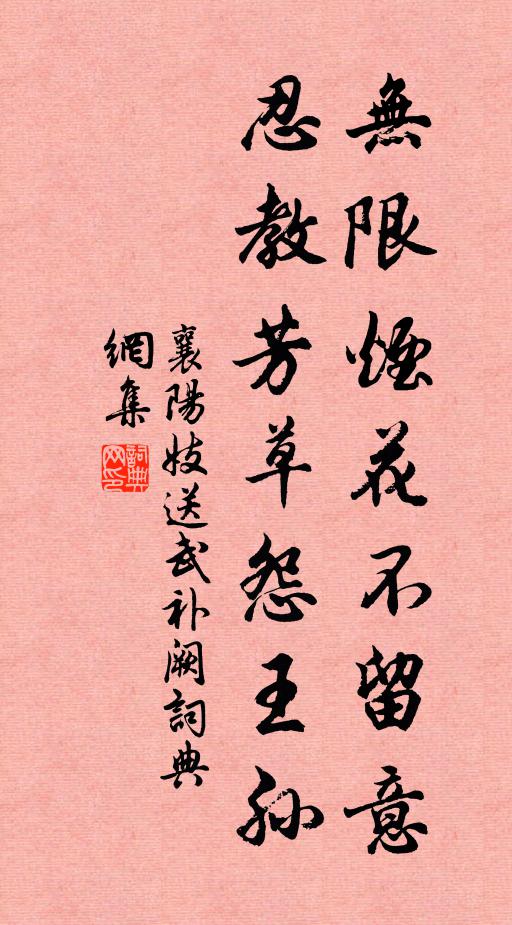 無限煙花不留意
忍教芳草怨王孫
襄陽妓送武补阙詞典
網集
詞典
网印